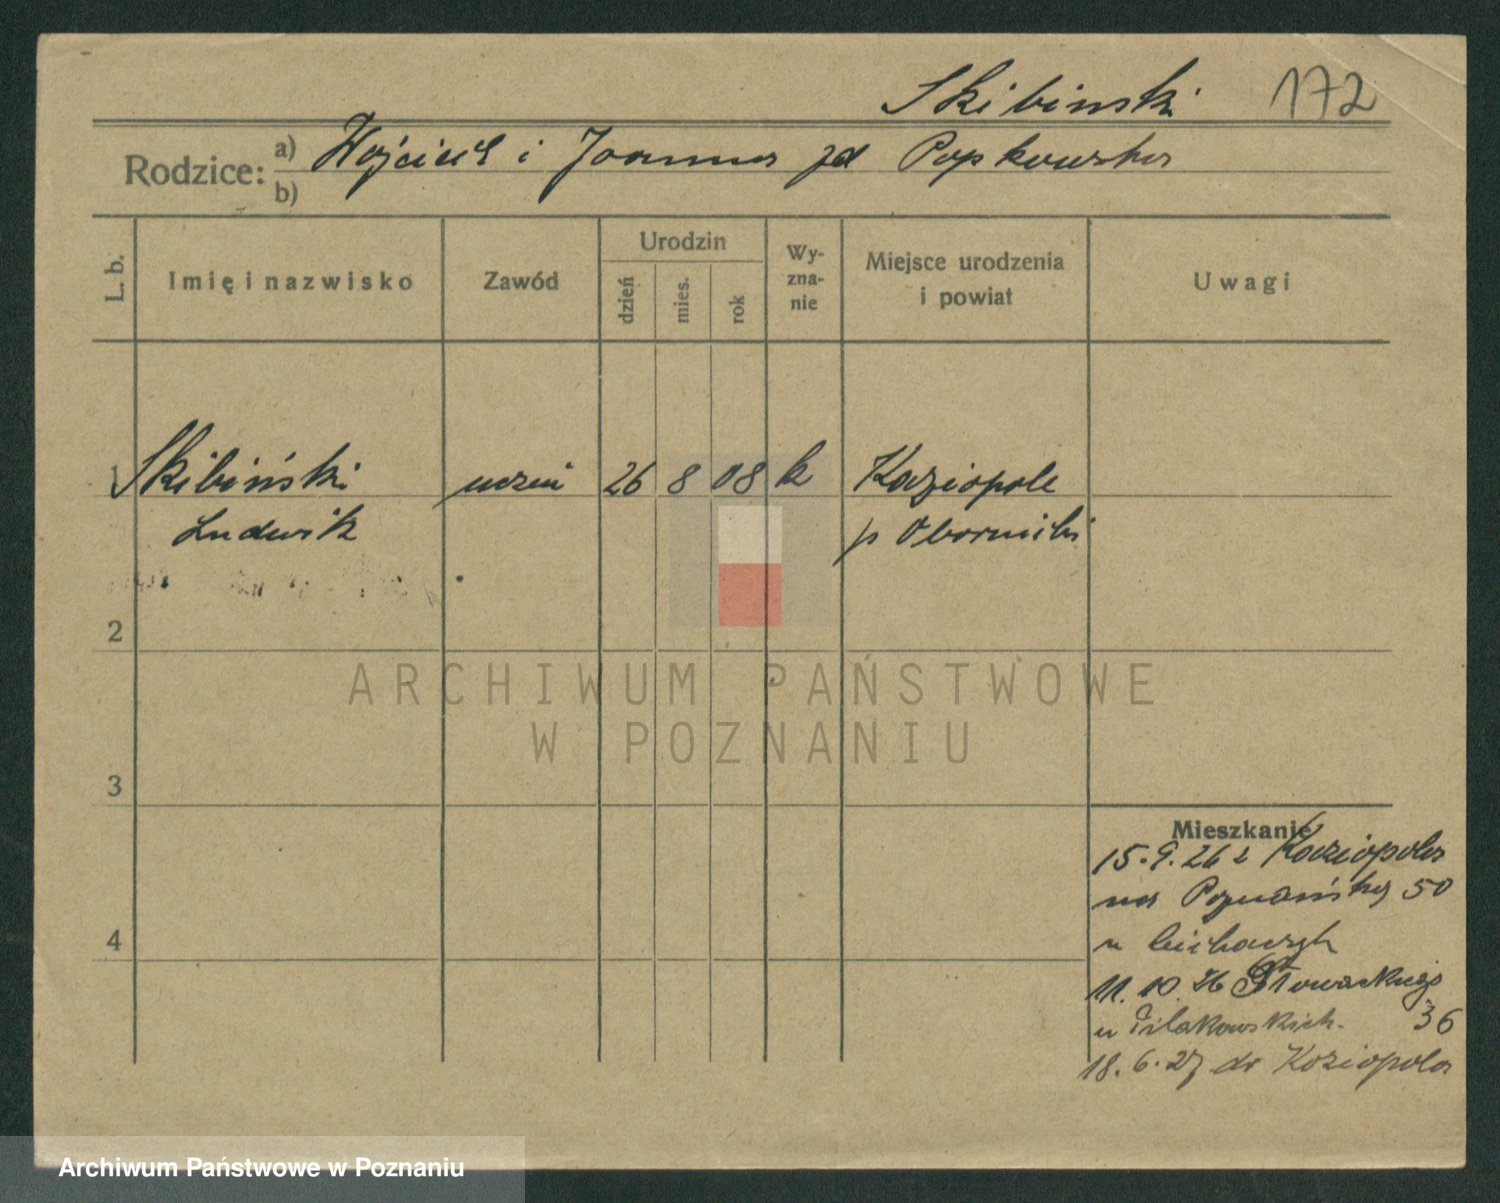 Skibinski 172
Rodzice: a) Wojciech i Joanna zd Popkowska
b)
L. b.
Imię i nazwisko
Zawód
Urodzin
dzień
mies.
rok
Wy-
zna-
nie
Miejsce urodzenia
i powiat
Uwagi
1 Skibiński uczeń 26 8 08 k Koziopole
Ludwik p Oborniki
2
3
4
Mieszkanie
15.9.26 z Koziopola
na Poznańską 50
u
11.10.26 Słowackiego
u 36
18.6.27 do Koziopola
ARCHIWUM PAŃSTWOWE
W POZNANIU
Archiwum Państwowe w Poznaniu